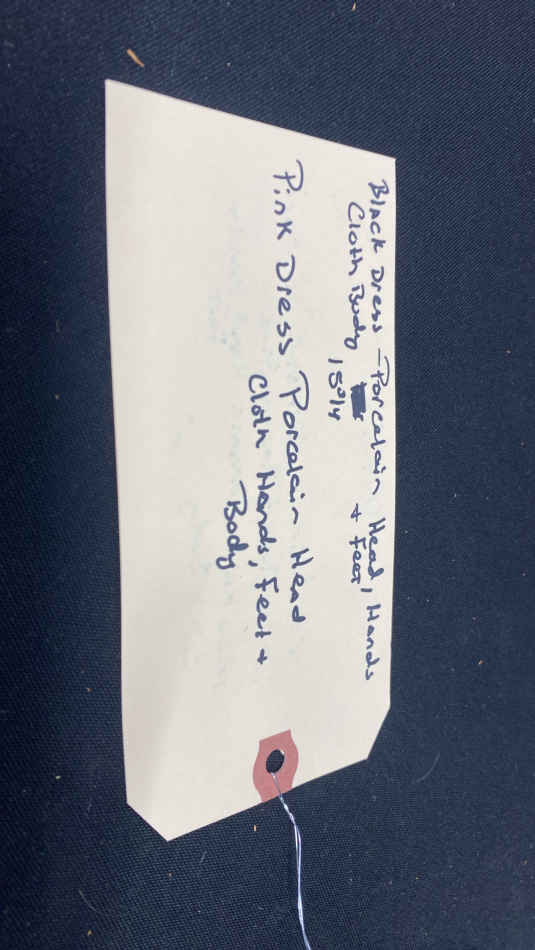 Black Dress - Porcelain Head, Hands
+ Feet
Cloth Body
Pink Dress Porcelain Head
Cloth Hands, Feet +
Body